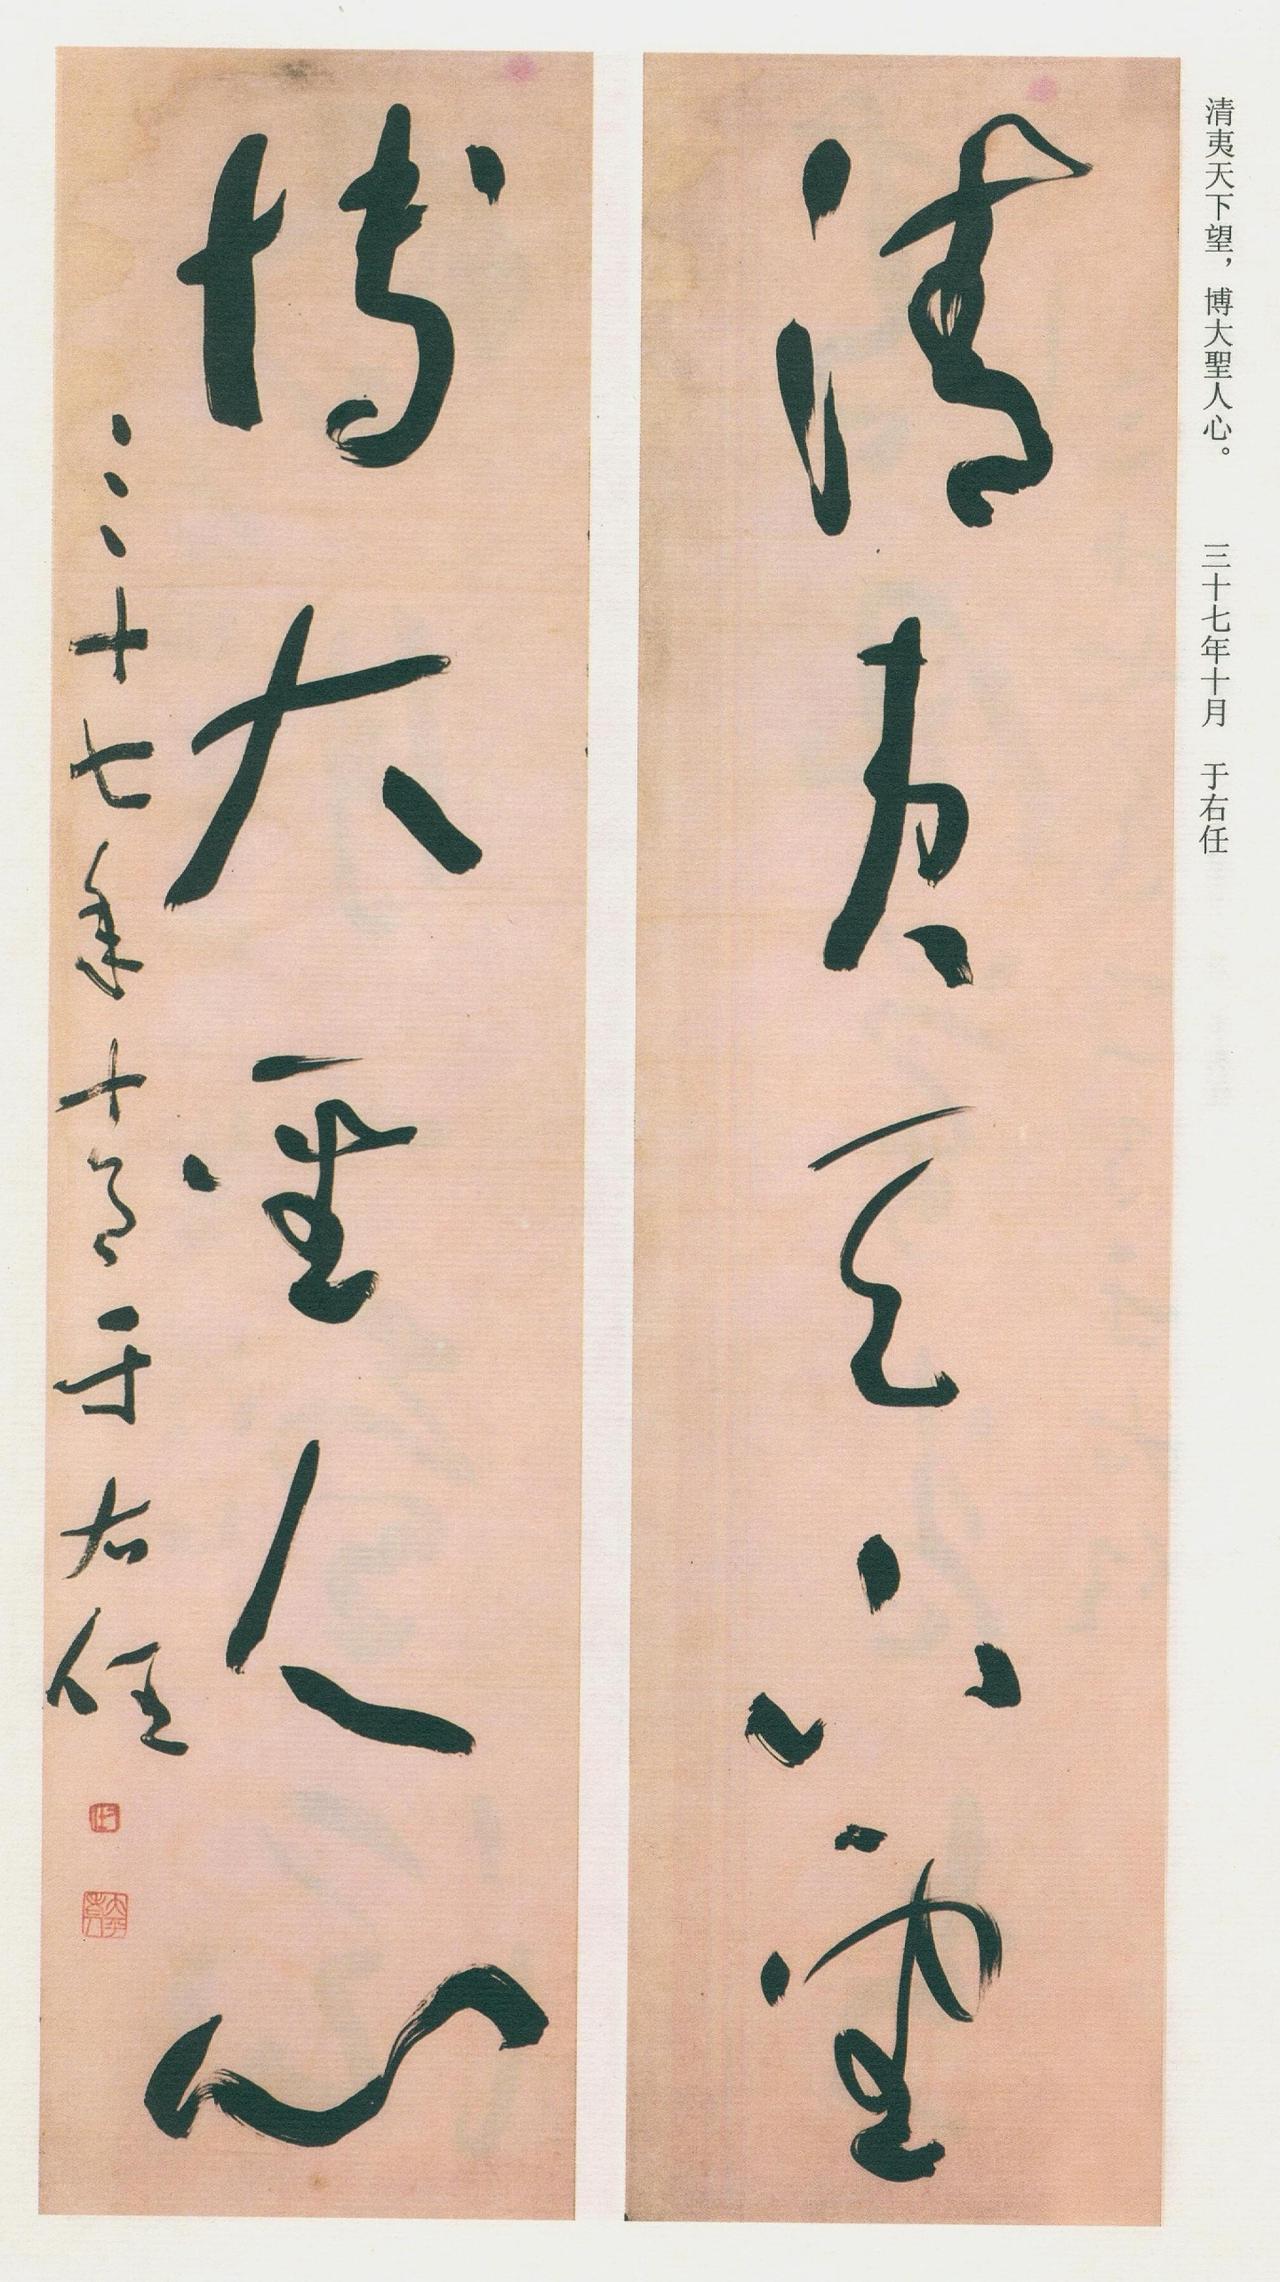 清夷天下望，博大聖人心。 三十七年十月 于右任
清夷天下望
博大聖人心
三十七年十月于右任